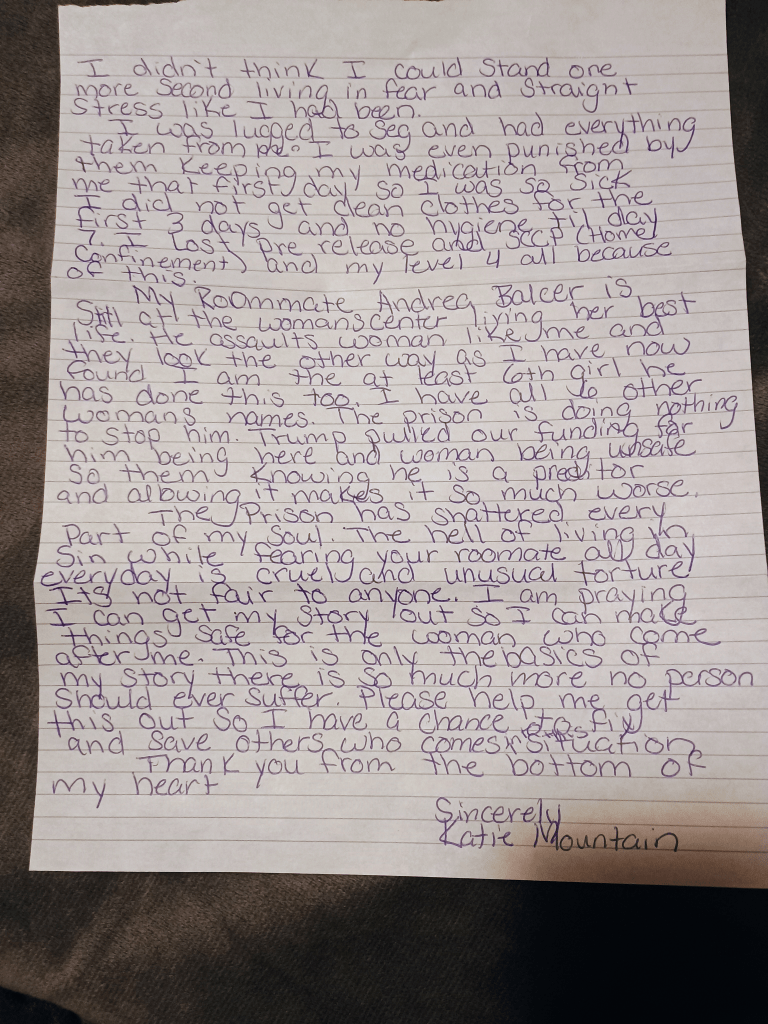 I didn't think I could stand one
more second living in fear and straight
stress like I had been.
I was lugged to seg and had everything
taken from me. I was even punished by
them keeping my medication from
me that first day so I was so sick
I did not get clean clothes for the
first 3 days and no hygiene til day
7. I lost pre release and SCCP (Home
Confinement) and my level 4 all because
of this.
My Roommate Andrea Balcer is
still at the womanscenter living her best
life. He assaults woman like me and
they look the other way as I have now
found I am the at least 6th girl he
has done this too. I have all 6 other
womans names. The prison is doing nothing
to stop him. Trump pulled our funding for
him being here and woman being unsafe
So them Knowing he is a preditor
and allowing it makes it so much worse.
The Prison has shattered every
Part of my Soul. The hell of living in
Sin while fearing your roomate all day
everyday is cruel and unusual torture
Its not fair to anyone. I am praying
I can get my story out so I can make
things safe for the woman who come
after me. This is only the basics of
my story there is so much more no person
should ever suffer. Please help me get
this out so I have a chance to fix
and save others who comes situation
Thank you from the bottom of
my heart
Sincerely
Katie Mountain